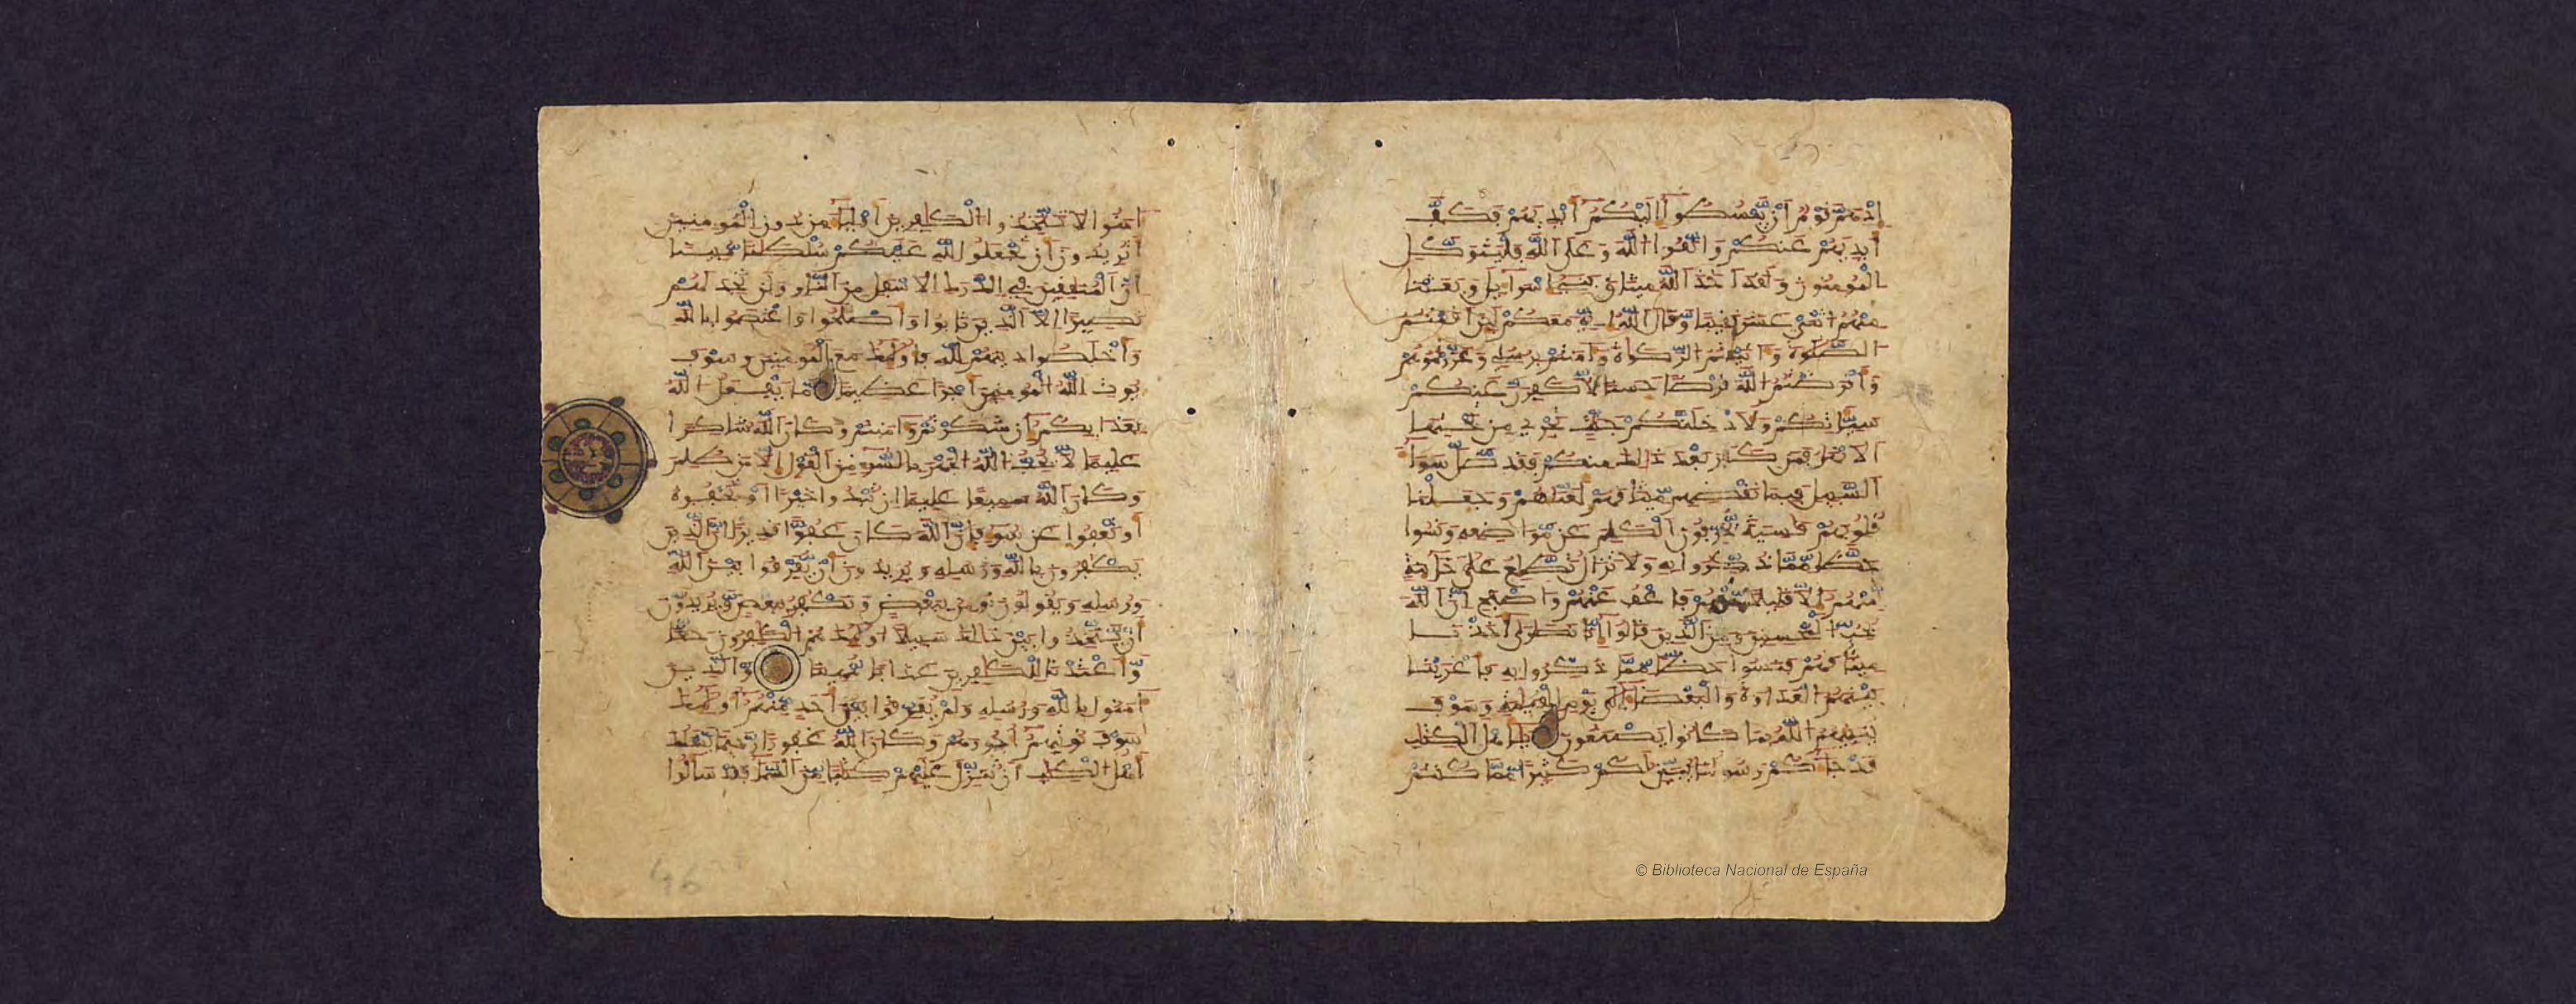 إذ هم قوم أن يبسطوا إليكم أيديهم فكف
أيديهم عنكم واتقوا الله وعلى الله فليتوكل
المومنون ولقد أخذ الله ميثاق بني إسرائيل وبعثنا
منهم اثني عشر نقيبا وقال الله إني معكم لئن أقمتم
الصلوة وآتيتم الزكوة وآمنتم برسلي وعزرتموهم
وأقرضتم الله قرضا حسنا لأكفرن عنكم
سيئاتكم ولأدخلنكم جنت تجري من تحتها
الأنهر فمن كفر بعد ذلك منكم فقد ضل سواء
السبيل فبما نقضهم ميثاقهم لعناهم وجعلنا
قلوبهم قاسية يحرفون الكلم عن مواضعه ونسوا
حظا مما ذكروا به ولا تزال تطلع على خائنة
منهم إلا قليلا منهم فاعف عنهم واصفح إن الله
يحب المحسنين ومن الذين قالوا إنا نصارى أخذنا
ميثاقهم فنسوا حظا مما ذكروا به فأغرينا
بينهم العداوة والبغضاء إلى يوم القيمة وسوف
ينبئهم الله بما كانوا يصنعون يأهل الكتب
قد جاءكم رسولنا يبين لكم كثيرا مما كنتم
آمنوا لا تتخذوا الكافرين أولياء من دون المومنين
أتريدون أن تجعلوا لله عليكم سلطنا مبينا
إن المنفقين في الدرك الأسفل من النار ولن تجد لهم
نصيرا إلا الذين تابوا وأصلحوا واعتصموا بالله
وأخلصوا دينهم لله فأولئك مع المومنين وسوف
يوت الله المومنين أجرا عظيما ما يفعل الله
بعذابكم إن شكرتم وآمنتم وكان الله شاكرا
عليما لا يحب الله الجهر بالسوء من القول إلا من ظلم
وكان الله سميعا عليما إن تبدوا خيرا أو تخفوه
أو تعفوا عن سوء فإن الله كان عفوا قديرا إن الذين
يكفرون بالله ورسله ويريدون أن يفرقوا بين الله
ورسله ويقولون نومن ببعض ونكفر ببعض ويريدون
أن يتخذوا بين ذلك سبيلا أولئك هم الكفرون حقا
وأعتدنا للكافرين عذابا مهينا والذين
آمنوا بالله ورسله ولم يفرقوا بين أحد منهم أولئك
سوف نوتيهم أجورهم وكان الله غفورا رحيما يسئلك
أهل الكتب أن تنزل عليهم كتبا من السماء فقد سألوا
46
© Biblioteca Nacional de España